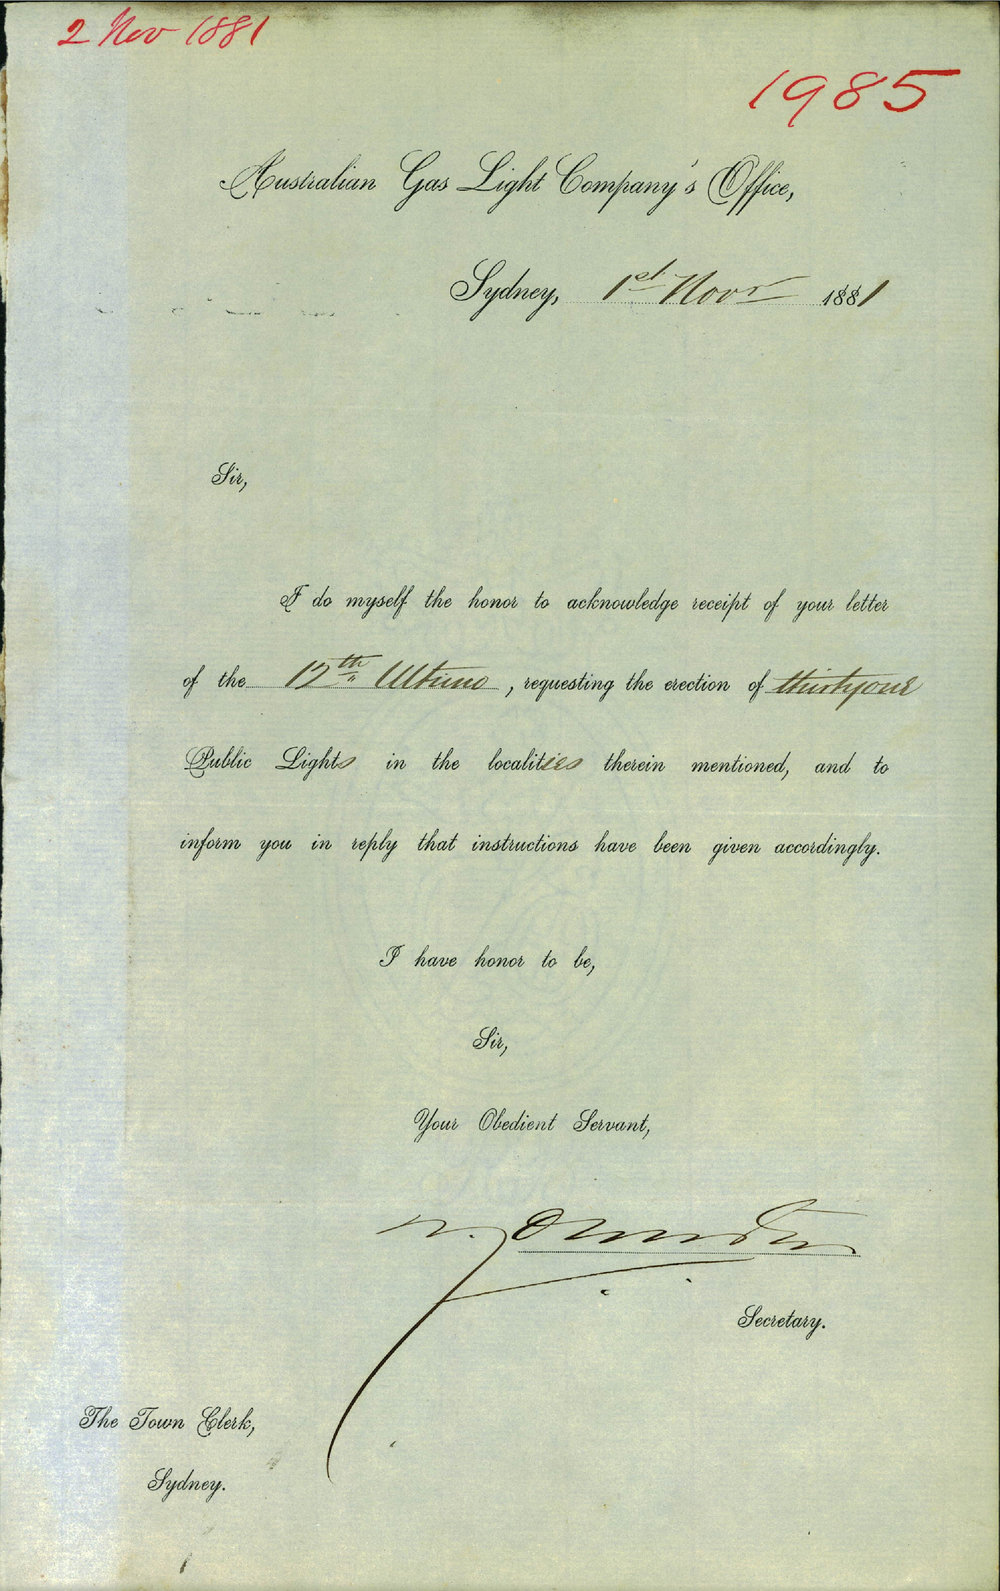 2 Nov 1881
1985
Australian Gas Light Company's Office,
Sydney, 1st Novr 1881
Sir,
I do myself the honor to acknowledge receipt of your letter
of the 12th Ultimo, requesting the erection of thirtyone
Public Lights in the localities therein mentioned, and to
inform you in reply that instructions have been given accordingly.
I have honor to be,
Sir,
Your Obedient Servant,
Secretary.
The Town Clerk,
Sydney.